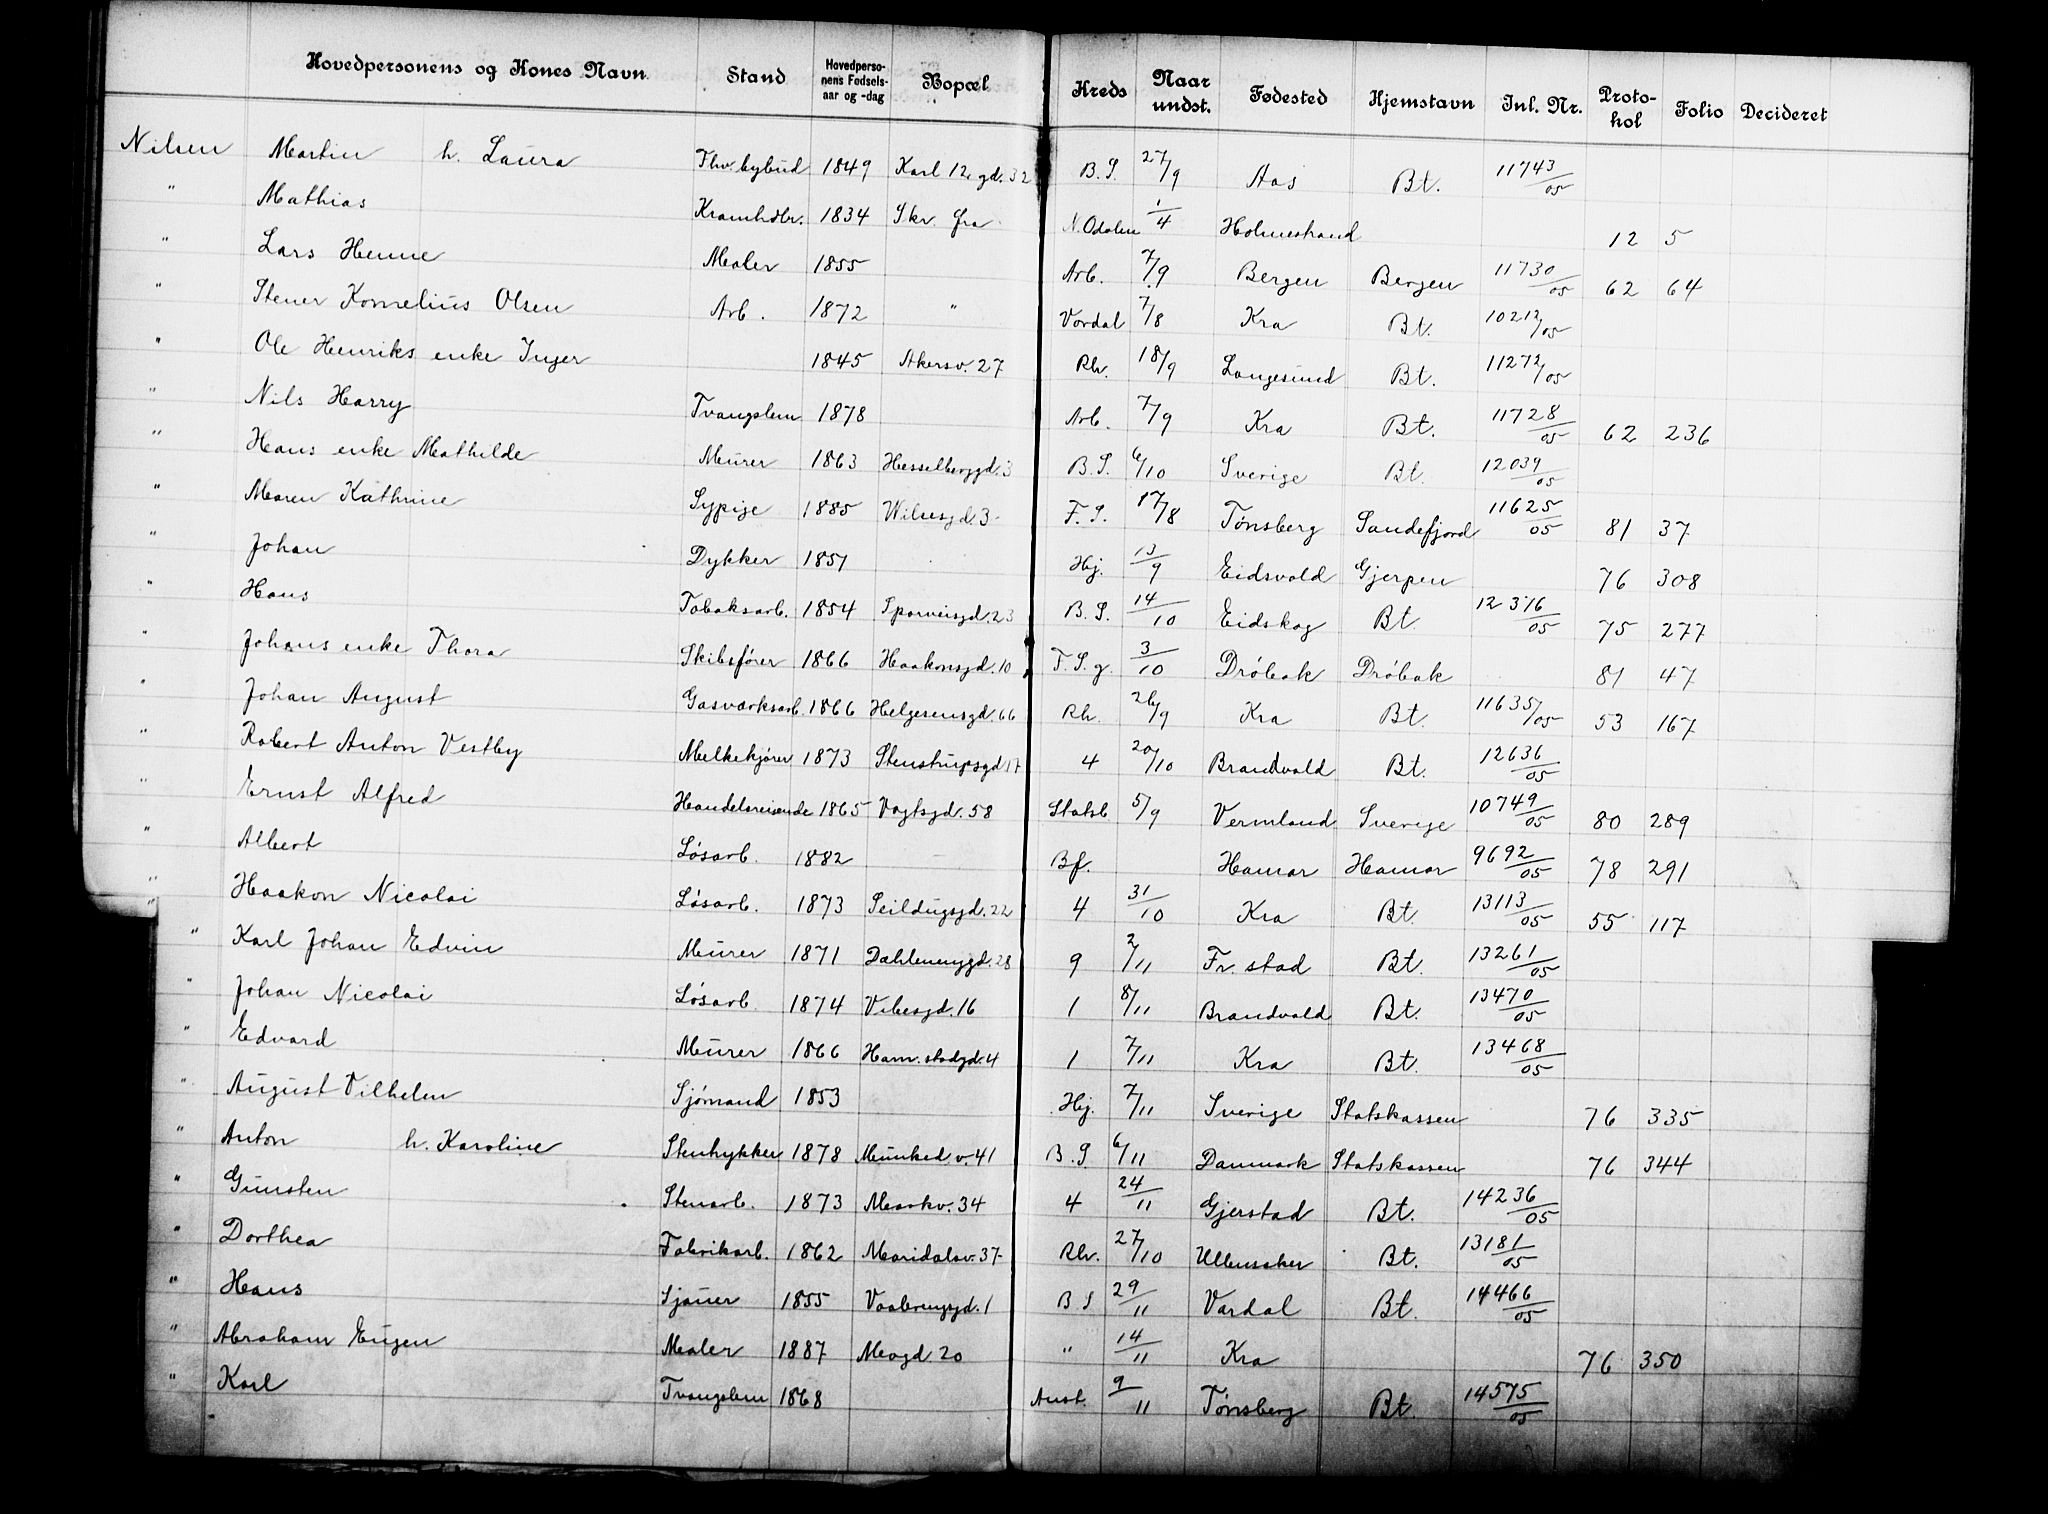 Hovedpersonens og Kones Navn Stand Hovedpersonens Fødselsaar og -dag Bopæl Kreds Naar undst. Fødested Hjemstavn Inl. Nr. Protokol Folio Decideret
Nilsen Martin h. Laura Fhv. bybud 1849 Karl 12 gd. 32 B.S. 27/9 Aas Bt. 11743/05
" Mathias Kramhdlr. 1834 Skr. fra N. Odalen 1/4 Holmestrand 12 5
" Lars Henne Maler 1855 Arb. 7/9 Bergen Bergen 11730/05 62 64
" Stener Kornelius Olsen Arb. 1872 " Vardal 7/8 Kra Bt. 10212/05
" Ole Henriks enke Inger 1845 Akersv. 27 Rh. 18/9 Langesund Bt. 11272/05
" Nils Harry Tvangslem 1878 Arb. 7/9 Kra Bt. 11728/05 62 236
" Hans enke Mathilde Murer 1863 Hesselberggd. 3 B.S. 6/10 Sverige Bt. 12039/05
" Maren Kathrine Sypige 1885 Wilsesgd. 3 F.S. 17/8 Tønsberg Sandefjord 11625/05 81 37
" Johan Dykker 1851 Hj. 13/9 Eidsvold Gjerpen 76 308
" Hans Tobaksarb. 1854 Sporveisgd. 23 B.S. 14/10 Eidskog Bt. 12316/05 75 277
" Johans enke Thora Skibsfører 1866 Haakonsgd. 10 F.S.g. 3/10 Drøbak Drøbak 81 47
" Johan August Gasværksarb. 1866 Helgesensgd. 66 Rh. 26/9 Kra Bt. 11635/05 53 167
" Robert Anton Vestby Melkekjører 1873 Stenstrupsgd 17 4 20/10 Brandvold Bt. 12636/05
" Ernst Alfred Handelsreisende 1865 Vogtsgd. 58 Statsb 5/9 Vermland Sverige 10749/05 80 289
" Albert Løsarb. 1882 Bf. Hamar Hamar 9692/05 78 291
" Haakon Nicolai Løsarb. 1873 Seildugsgd. 22 4 31/10 Kra Bt. 13113/05 55 117
" Karl Johan Edvin Murer 1871 Dahlenenggd. 28 9 2/11 Fr. stad Bt. 13261/05
" Johan Nicolai Løsarb. 1874 Vibesgd. 16 1 8/11 Brandvold Bt. 13470/05
" Edvard Murer 1866 Ham. stadgd. 4 1 7/11 Kra Bt. 13468/05
" August Vilhelm Sjømand 1853 Hj. 7/11 Sverige Statskassen 76 335
" Anton h. Karoline Stentrykker 1878 Munked. v. 41 B.S 6/11 Danmark Statskassen 76 344
" Gunsten Stenarb. 1873 Markv. 34 4 24/11 Gjerstad Bt. 14236/05
" Dorthea Fabrikarb. 1862 Maridalsv. 37 Rh. 27/10 Ullensaker Bt. 13181/05
" Hans Sjauer 1855 Vaalerenggd. 1 B S 29/11 Vardal Bt. 14466/05
" Abraham Eugen Maler 1887 Maogd. 20 " 14/11 Kra 76 350
" Karl Tvangslem 1868 Anst. 9/11 Tønsberg Bt. 14575/05